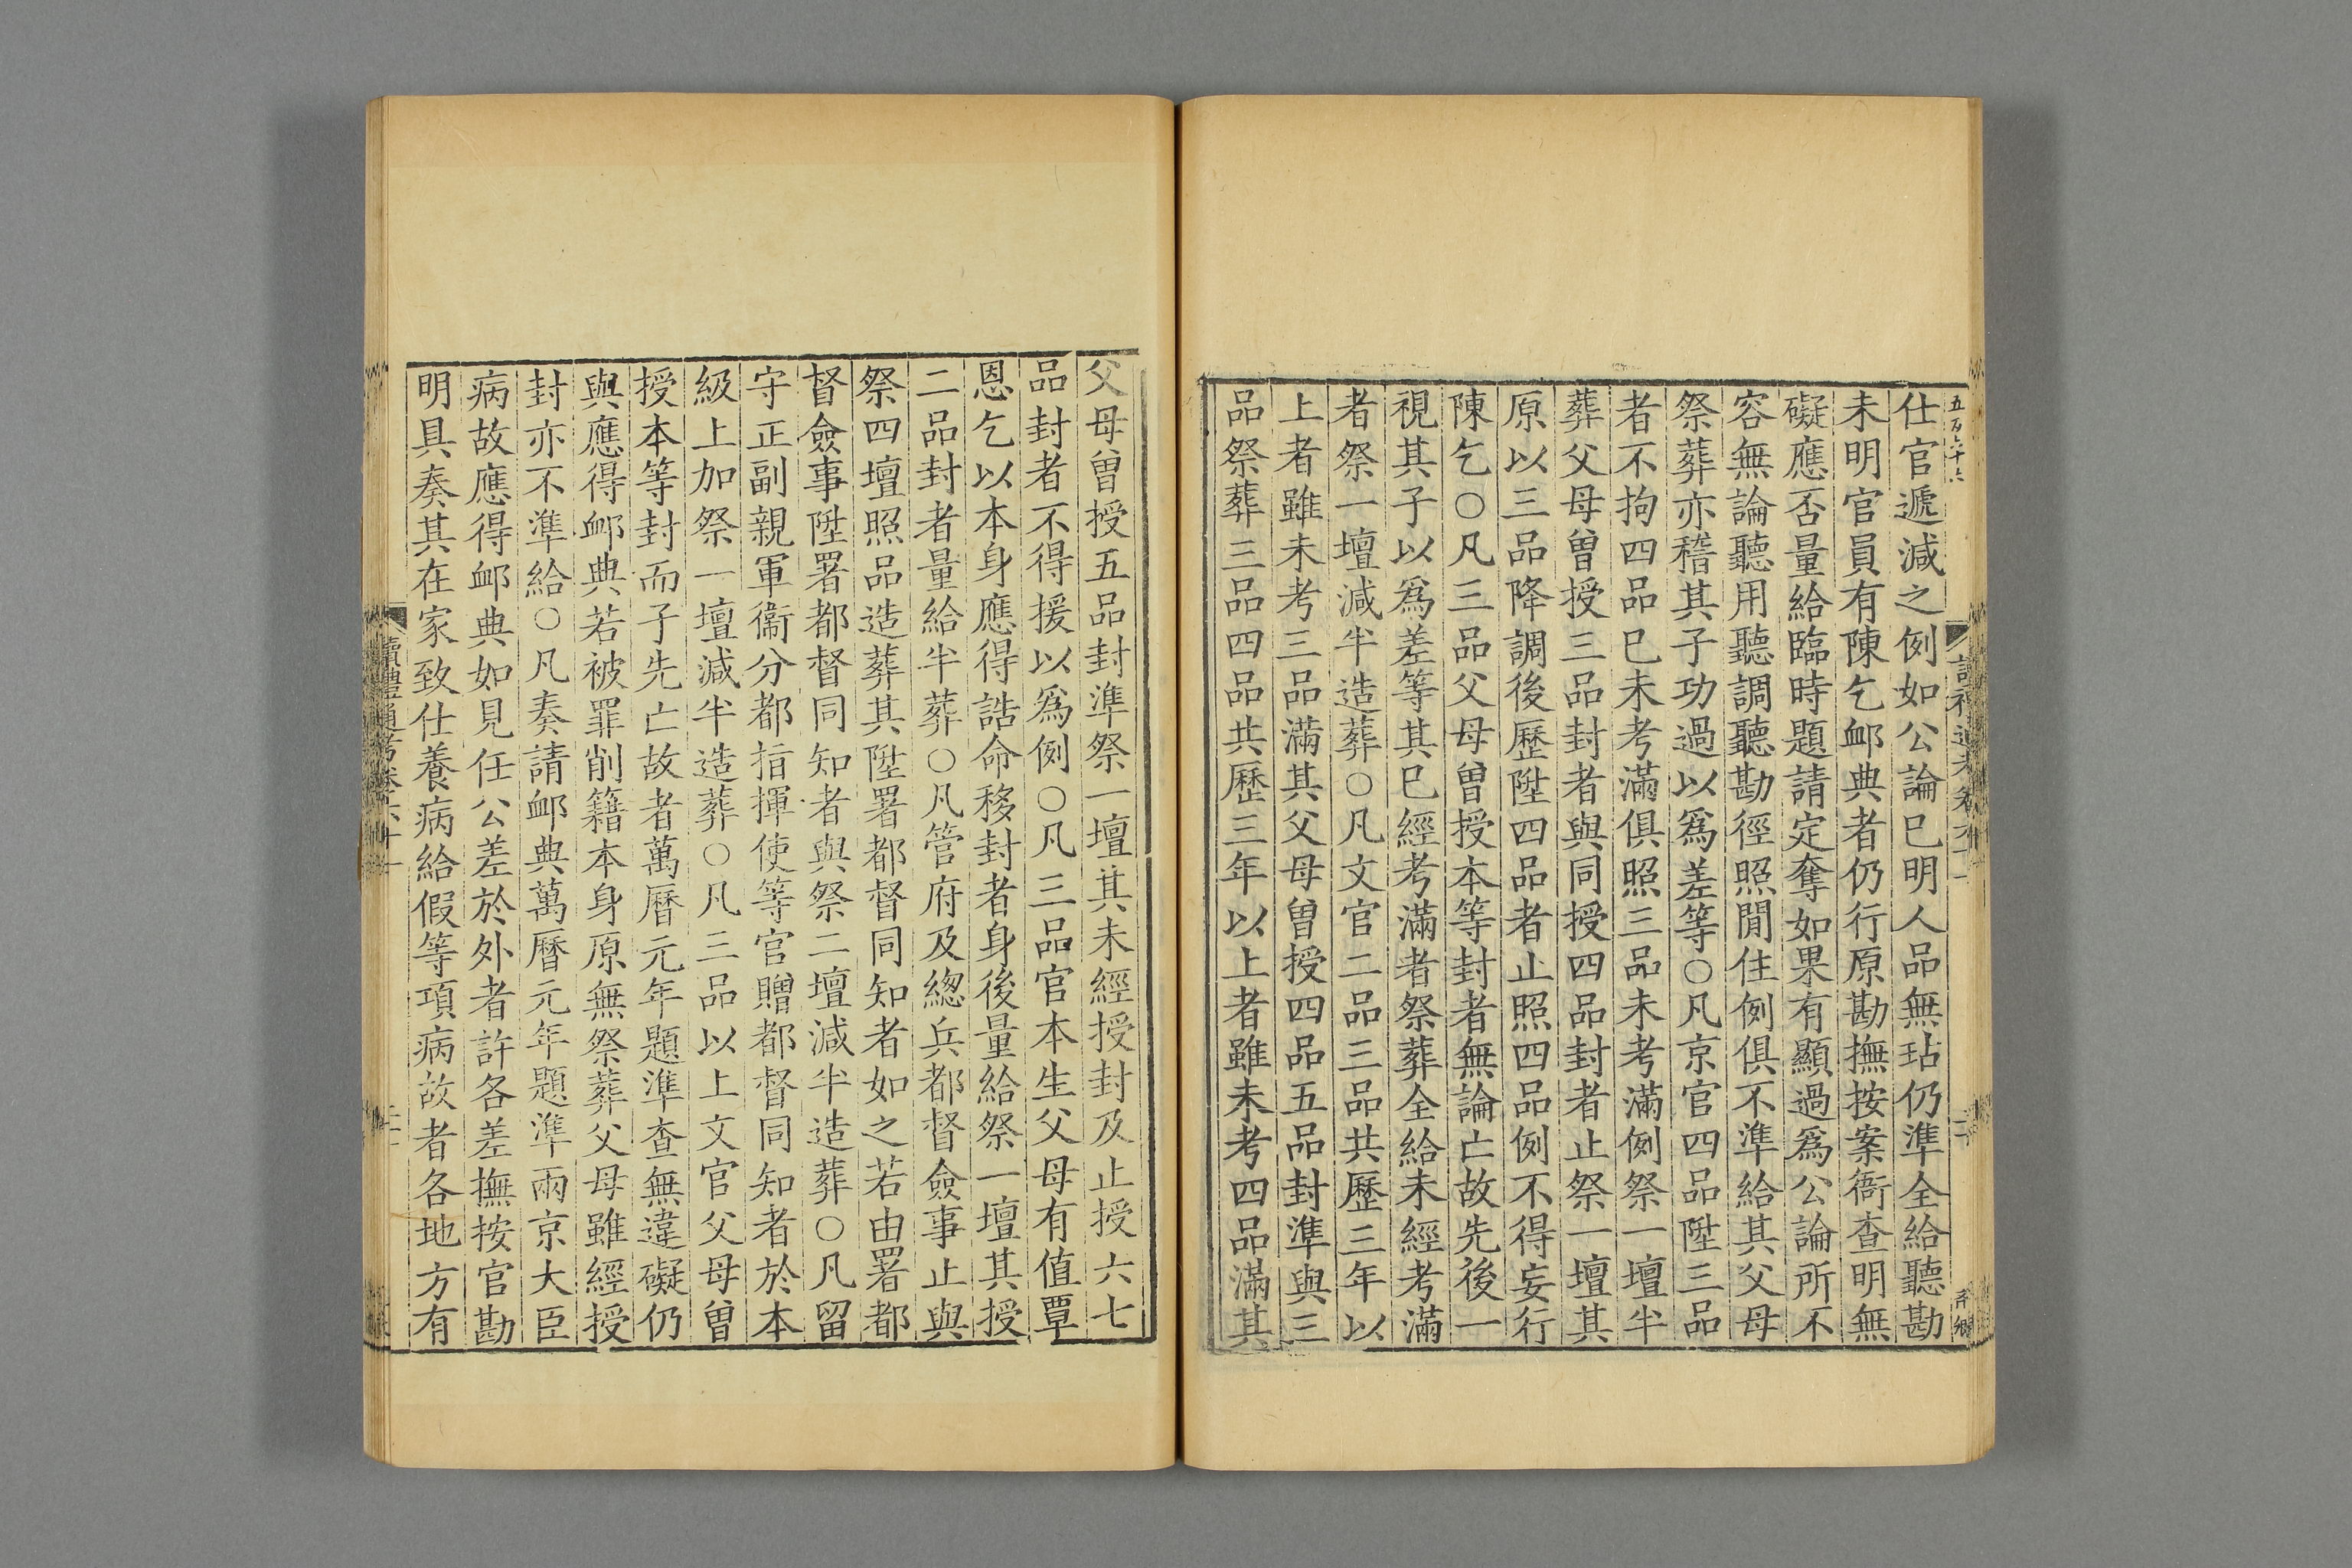 仕官遞減之例如公論已明人品無玷仍準全給聽勘
未明官員有陳乞䘏典者仍行原勘撫按案衙查明無
礙應否量給臨時題請定奪如果有顯過爲公論所不
容無論聽用聽調聽勘徑照閒住例俱不準給其父母
祭葬亦稽其子功過以爲差等○凡京官四品陞三品
者不拘四品已未考滿俱照三品未考滿例祭一壇半
葬父母曾授三品封者與同授四品封者止祭一壇其
原以三品降調後歷陞四品者止照四品例不得妄行
陳乞○凡三品父母曾授本等封者無論亡故先後一
視其子以爲差等其已經考滿者祭葬全給未經考滿
者祭一壇減半造葬○凡文官二品三品共歷三年以
上者雖未考三品滿其父母曾授四品五品封準與三
品祭葬三品四品共歷三年以上者雖未考四品滿其
父母曾授五品封準祭一壇其未經授封及止授六七
品封者不得援以爲例○凡三品官本生父母有值覃
恩乞以本身應得誥命移封者身後量給祭一壇其授
二品封者量給半葬○凡管府及緫兵都督僉事止與
祭四壇照品造葬其陞署都督同知者如之若由署都
督僉事陞署都督同知者與祭二壇減半造葬○凡留
守正副親軍衞分都指揮使等官贈都督同知者於本
級上加祭一壇減半造葬○凡三品以上文官父母曾
授本等封而子先亡故者萬曆元年題準查無違礙仍
與應得䘏典若被罪削籍本身原無祭葬父母雖經授
封亦不準給○凡奏請䘏典萬曆元年題準兩京大臣
病故應得䘏典如見任公差於外者許各差撫按官勘
明具奏其在家致仕養病給假等項病故者各地方有
讀禮通考卷六十一